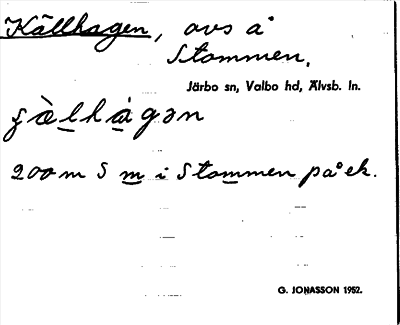 Källhagen, avs å
Stommen,
Järbo sn, Valbo hd, Älvsb. ln.
200 m S m i Stommen på ek.
G. JONASSON 1952.